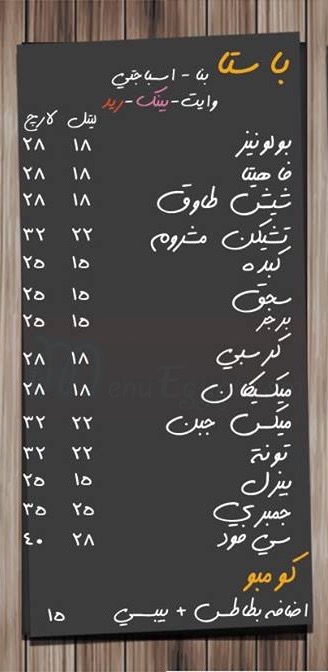 باستا
بنا - اسباجتي
وايت - بينك - ريد
ليتل لارج
بولونيز ١٨ ٢٨
فاهيتا ١٨ ٢٨
شيش طاووق ١٨ ٢٨
تشيكن مشروم ٢٢ ٣٢
كبده ١٥ ٢٥
سجق ١٥ ٢٥
برجر ١٥ ٢٥
كرسبي ١٨ ٢٨
ميكسيكان ١٨ ٢٨
ميكس جبن ٢٢ ٣٢
تونة ٢٢ ٣٢
بيزل ١٥ ٢٥
جمبري ٢٥ ٣٥
سي فود ٢٨ ٤٠
كومبو
اضافه بطاطس + بيبسي ١٥